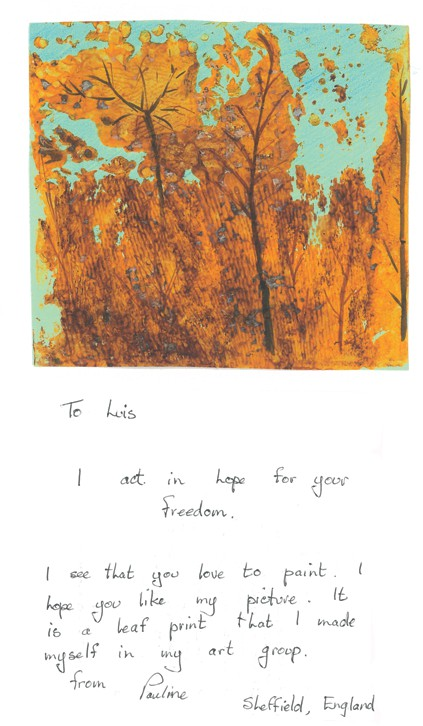 To Luis
I act in hope for your
freedom.
I see that you love to paint. I
hope you like my picture. It
is a leaf print that I made
myself in my art group.
from Pauline
Sheffield, England